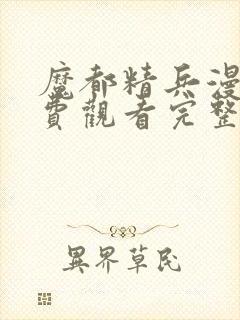 魔都精兵漫
費觀看完整
異界草民